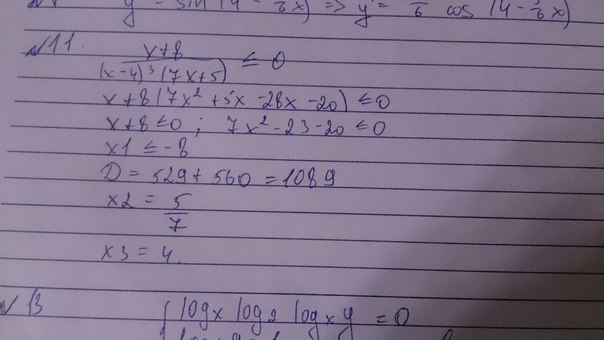 y = sin (4 - 5/6 x) => y' = /6 cos (4 - 5/6 x)
№11. x+8 / (x-4)³(7x+5) ≤ 0
x+8(7x²+5x-28x-20) ≤ 0
x+8 ≤ 0 ; 7x²-23-20 ≤ 0
x1 ≤ -8
D = 529 + 560 = 1089
x2 = 5/7
x3 = 4
№13 { logx log2 logxy = 0